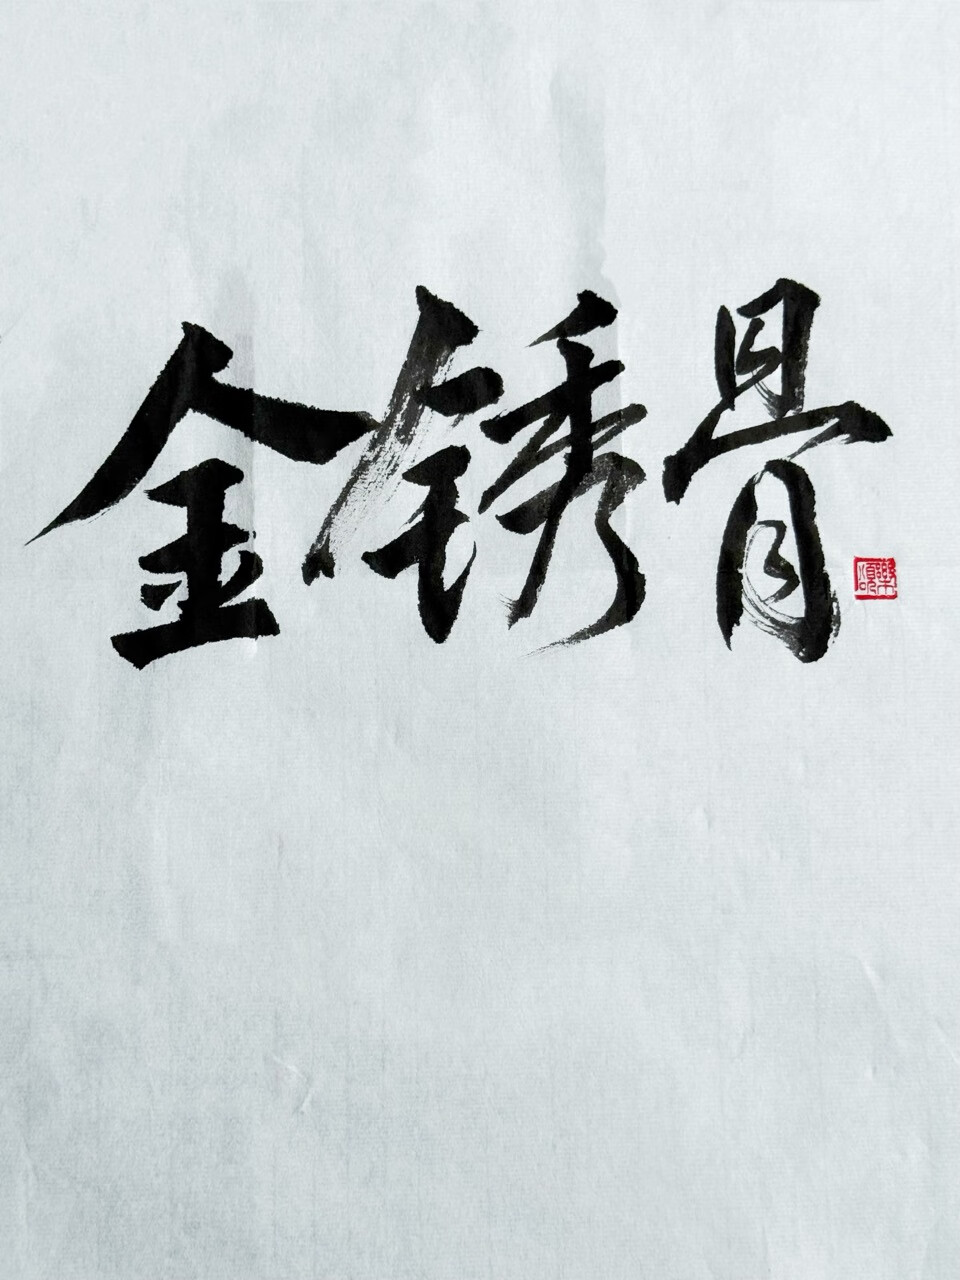 金锈骨